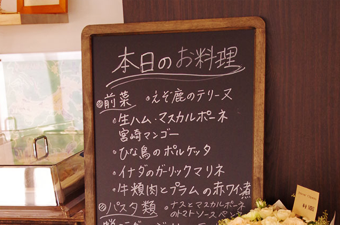 本日のお料理
◎前菜 ・えぞ鹿のテリーヌ
・生ハム・マスカルポーネ
宮崎マンゴー
・ひな鳥のポルケッタ
・イナダのガーリックマリネ
・牛頬肉とプラムの赤ワイン煮
◎パスタ類 ・ナスとマスカルポーネ
のトマトソースペンネ